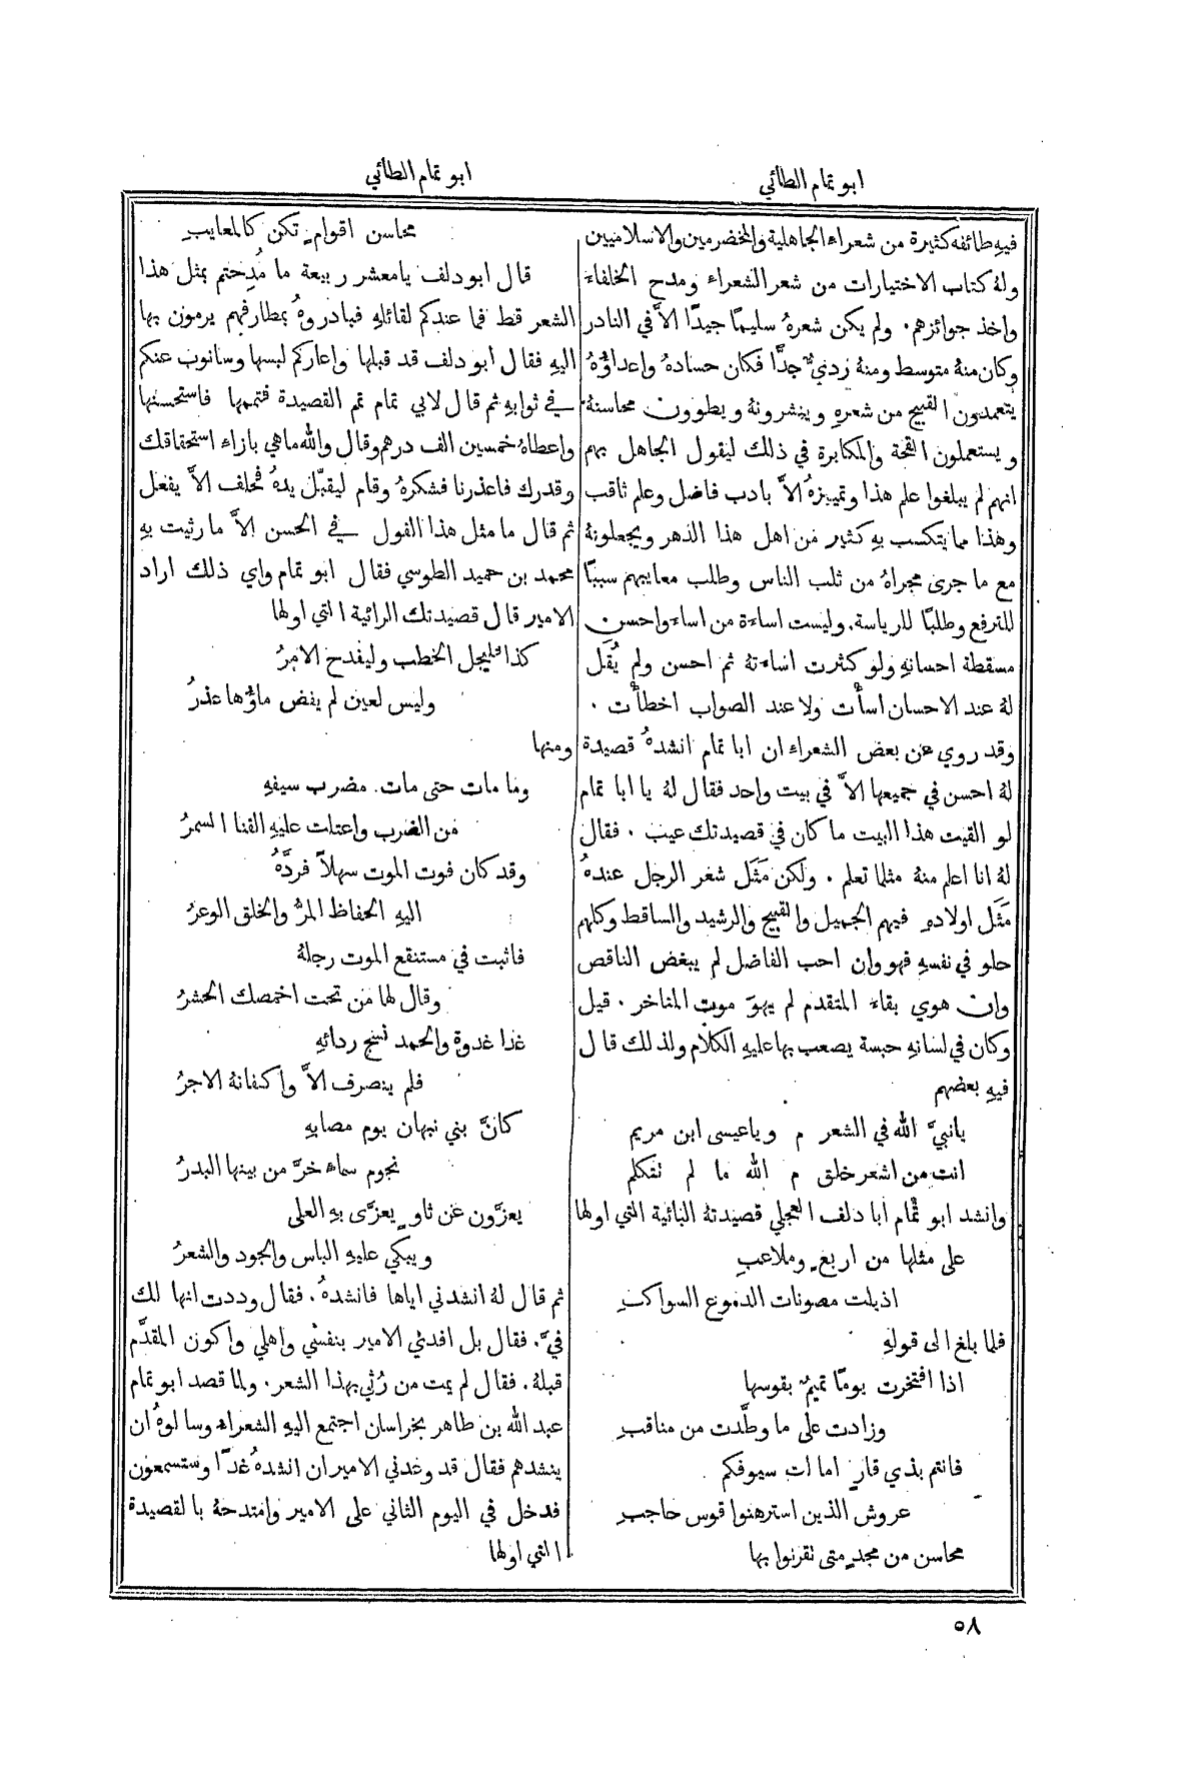 ابو تمام الطائي
فيهِ طائفه كثيرة من شعراءِ الجاهلية والمخضرمين والاسلاميين
ولهُ كتاب الاختيارات من شعر الشعراء ومدح الخلفاءَ
واخذ جوائزهم. ولم يكن شعرهُ سليمًا جيدًا الاَّ في النادر
وكان منهُ متوسط ومنهُ زديءٌ جدًّا فكان حسادهُ واعداؤهُ
يتعمدون القبيح من شعرهِ وينشرونهُ ويطوون محاسنهُ
ويستعملون القحة والمكابرة في ذلك ليقول الجاهل بهم
انهم لم يبلغوا علم هذا وتمييزهُ الاَّ بادب فاضل وعلم ثاقب
وهذا مما يتكسب بهِ كثير من اهل هذا الدهر ويجعلونهُ
مع ما جرى مجراهُ من ثلب الناس وطلب معايبهم سببًا
للترفع وطلبًا للرياسة. وليست اساءة من اساء واحسن
مسقطة احسانهِ ولو كثرت اساءتهُ ثم احسن ولم يُقَل
لهُ عند الاحسان اسأْت ولا عند الصواب اخطأْت .
وقد روي عن بعض الشعراء ان ابا تمام انشدهُ قصيدة
لهُ احسن في جميعها الاَّ في بيت واحد فقال لهُ يا ابا تمام
لو القيت هذا البيت ما كان في قصيدتك عيب . فقال
لهُ انا اعلم منهُ مثلما تعلم . ولكن مَثَل شعر الرجل عندهُ
مَثَل اولادهِ فيهم الجميل والقبيح والرشيد والساقط وكلهم
حلو في نفسهِ فهو وان احب الفاضل لم يبغض الناقص
وان هوي بقاءَ المتقدم لم يهوَ موت المتاخر . قيل
وكان في لسانهِ حبسة يصعب بها عليهِ الكلام ولذلك قال
فيهِ بعضهم
يانبيَّ الله في الشعر م وياعيسى ابن مريم
انت من اشعر خلق م الله ما لم تتكلم
وانشد ابو تمام ابا دلف العجلي قصيدتهُ البائية التي اولها
على مثلها من اربعٍ وملاعبِ
اذيلت مصونات الدموع السواكبِ
فلما بلغ الى قولهِ
اذا افتخرت يومًا تميمٌ بقوسها
وزادت على ما وطَّدت من مناقبِ
فانتم بذي قارٍ امالت سيوفكم
عروش الذين استرهنوا قوس حاجبِ
محاسن من مجدٍ متى تقرنوا بها
ابو تمام الطائي
محاسن اقوامٍ تكن كالمعايبِ
قال ابو دلف يامعشر ربيعة ما مُدِحتم بمثل هذا
الشعر قط فما عندكم لقائلهِ فبادروهُ بمطارفهم يرمون بها
اليهِ فقال ابو دلف قد قبلها واعاركم لبسها وسانوب عنكم
في ثوابهِ ثم قال لابي تمام تمم القصيدة فتممها فاستحسنها
واعطاهُ خمسين الف درهم وقال والله ماهي بازاء استحقاقك
وقدرك فاعذرنا فشكرهُ وقام ليقبّل يدهُ فحلف الاَّ يفعل
ثم قال ما مثل هذا القول في الحسن الاَّ ما رثيت بهِ
محمد بن حميد الطوسي فقال ابو تمام واي ذلك اراد
الامير قال قصيدتك الرائية التي اولها
كذا فليجل الخطب وليفدح الامرُ
وليس لعين لم يفض ماؤها عذرُ
ومنها
وما مات حتى مات مضرب سيفهِ
من الضرب واعتلت عليهِ القنا السمرُ
وقد كان فوت الموت سهلاً فردَّهُ
اليهِ الحفاظ المرُّ والخلق الوعرُ
فاثبت في مستنقع الموت رجلهُ
وقال لها من تحت اخمصك الحشرُ
غدا غدوة والحمد نسج ردائهِ
فلم ينصرف الاَّ واكفانهُ الاجرُ
كانَّ بني نبهان يوم مصابهِ
نجوم سماء خرَّ من بينها البدرُ
يعزَّون عن ثاوٍ يعزَّى بهِ العلى
ويبكي عليهِ الباس والجود والشعرُ
ثم قال لهُ انشدني اياها فانشدهُ. فقال وددت انها لك
فيَّ. فقال بل افدي الامير بنفسي واهلي واكون المقدَّم
قبلهُ. فقال لم يمت من رُثي بهذا الشعر. ولما قصد ابو تمام
عبد الله بن طاهر بخراسان اجتمع اليهِ الشعراء وسالوهُ ان
ينشدهم فقال قد وعدني الامير ان انشدهُ غدًا وستسمعون
فدخل في اليوم الثاني على الامير وامتدحهُ بالقصيدة
التي اولها
٥٨